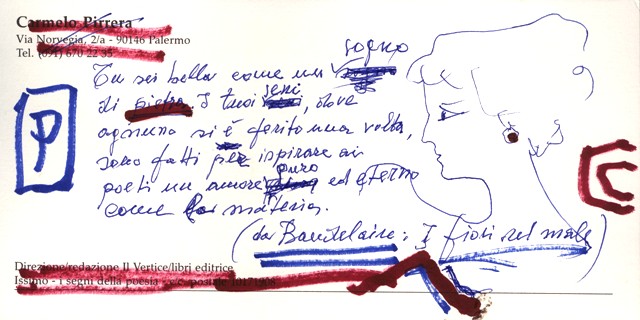 Carmelo Pirrera
Via Norvegia, 2/a - 90146 Palermo
Tel. (091) 670 22 35
P
Tu sei bella come un sogno
di pietra. I tuoi seni, dove
ognuno si è ferito una volta,
sono fatti per ispirare ai
poeti un amore puro ed eterno
come la materia.
(da Baudelaire: I fiori del male)
Direzione/redazione Il Vertice/libri editrice
Issimo - i segni della poesia - c.c. postale